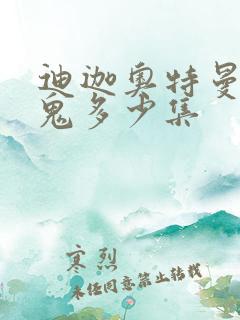 迪迦奥特曼
鬼多少集
寒烈
未经同意禁止转载